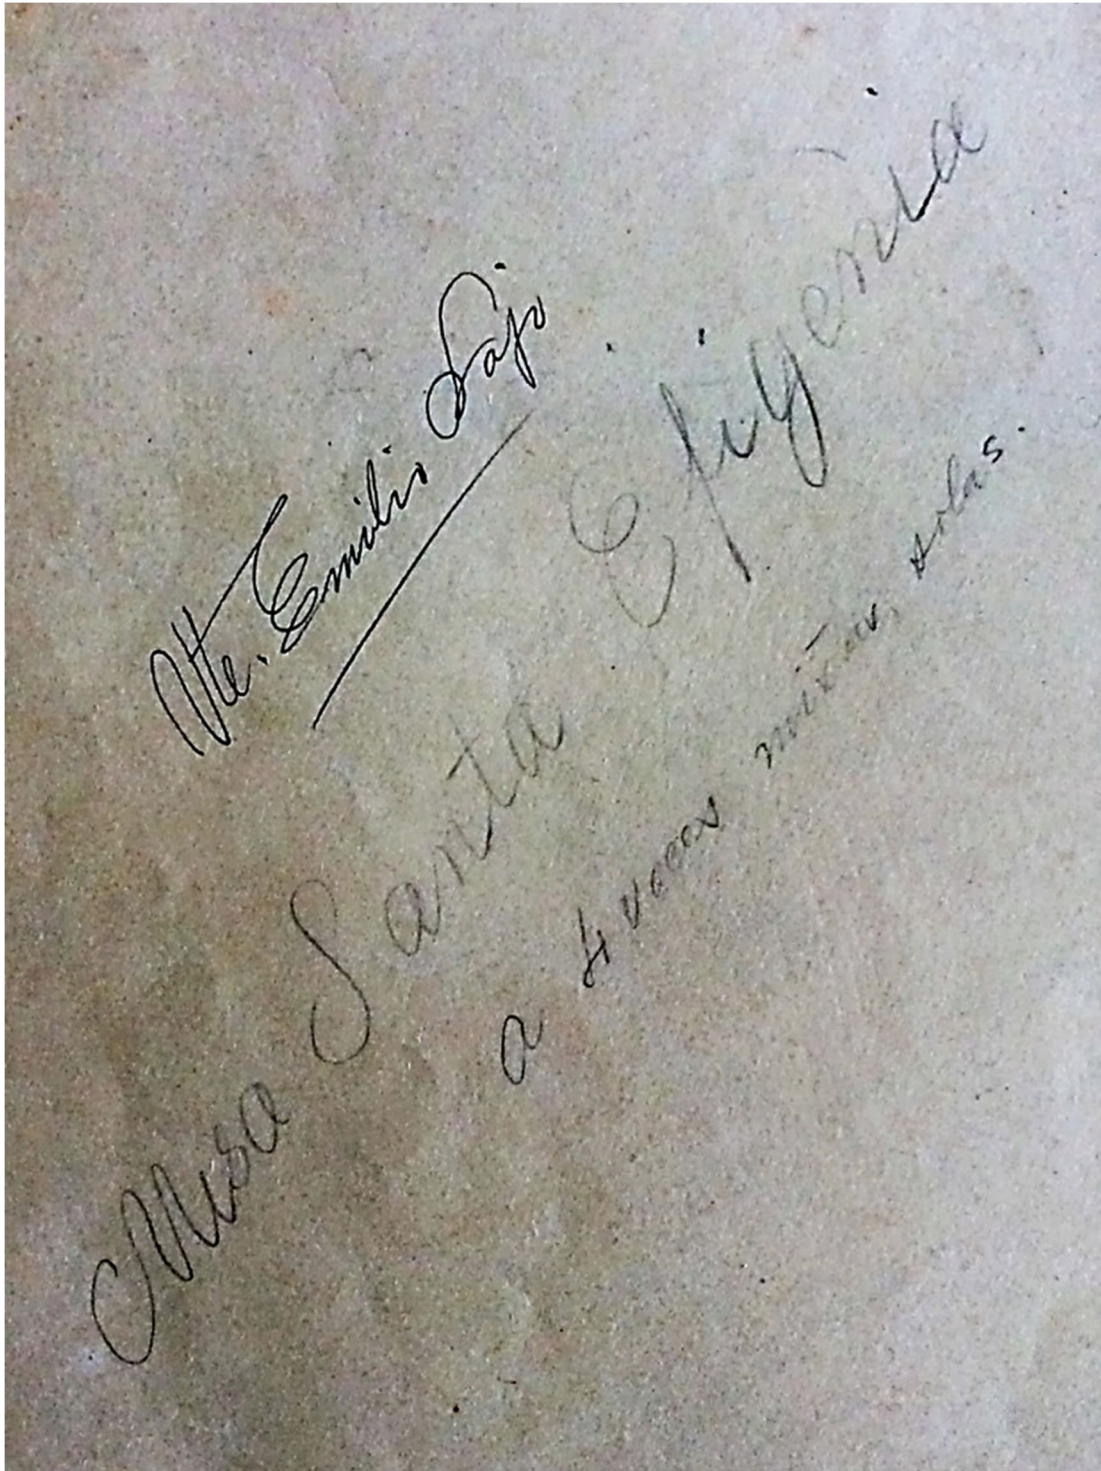 Vte. Emilio Sojo
Misa Santa Efigenia
a 4 voces mixtas, solas.